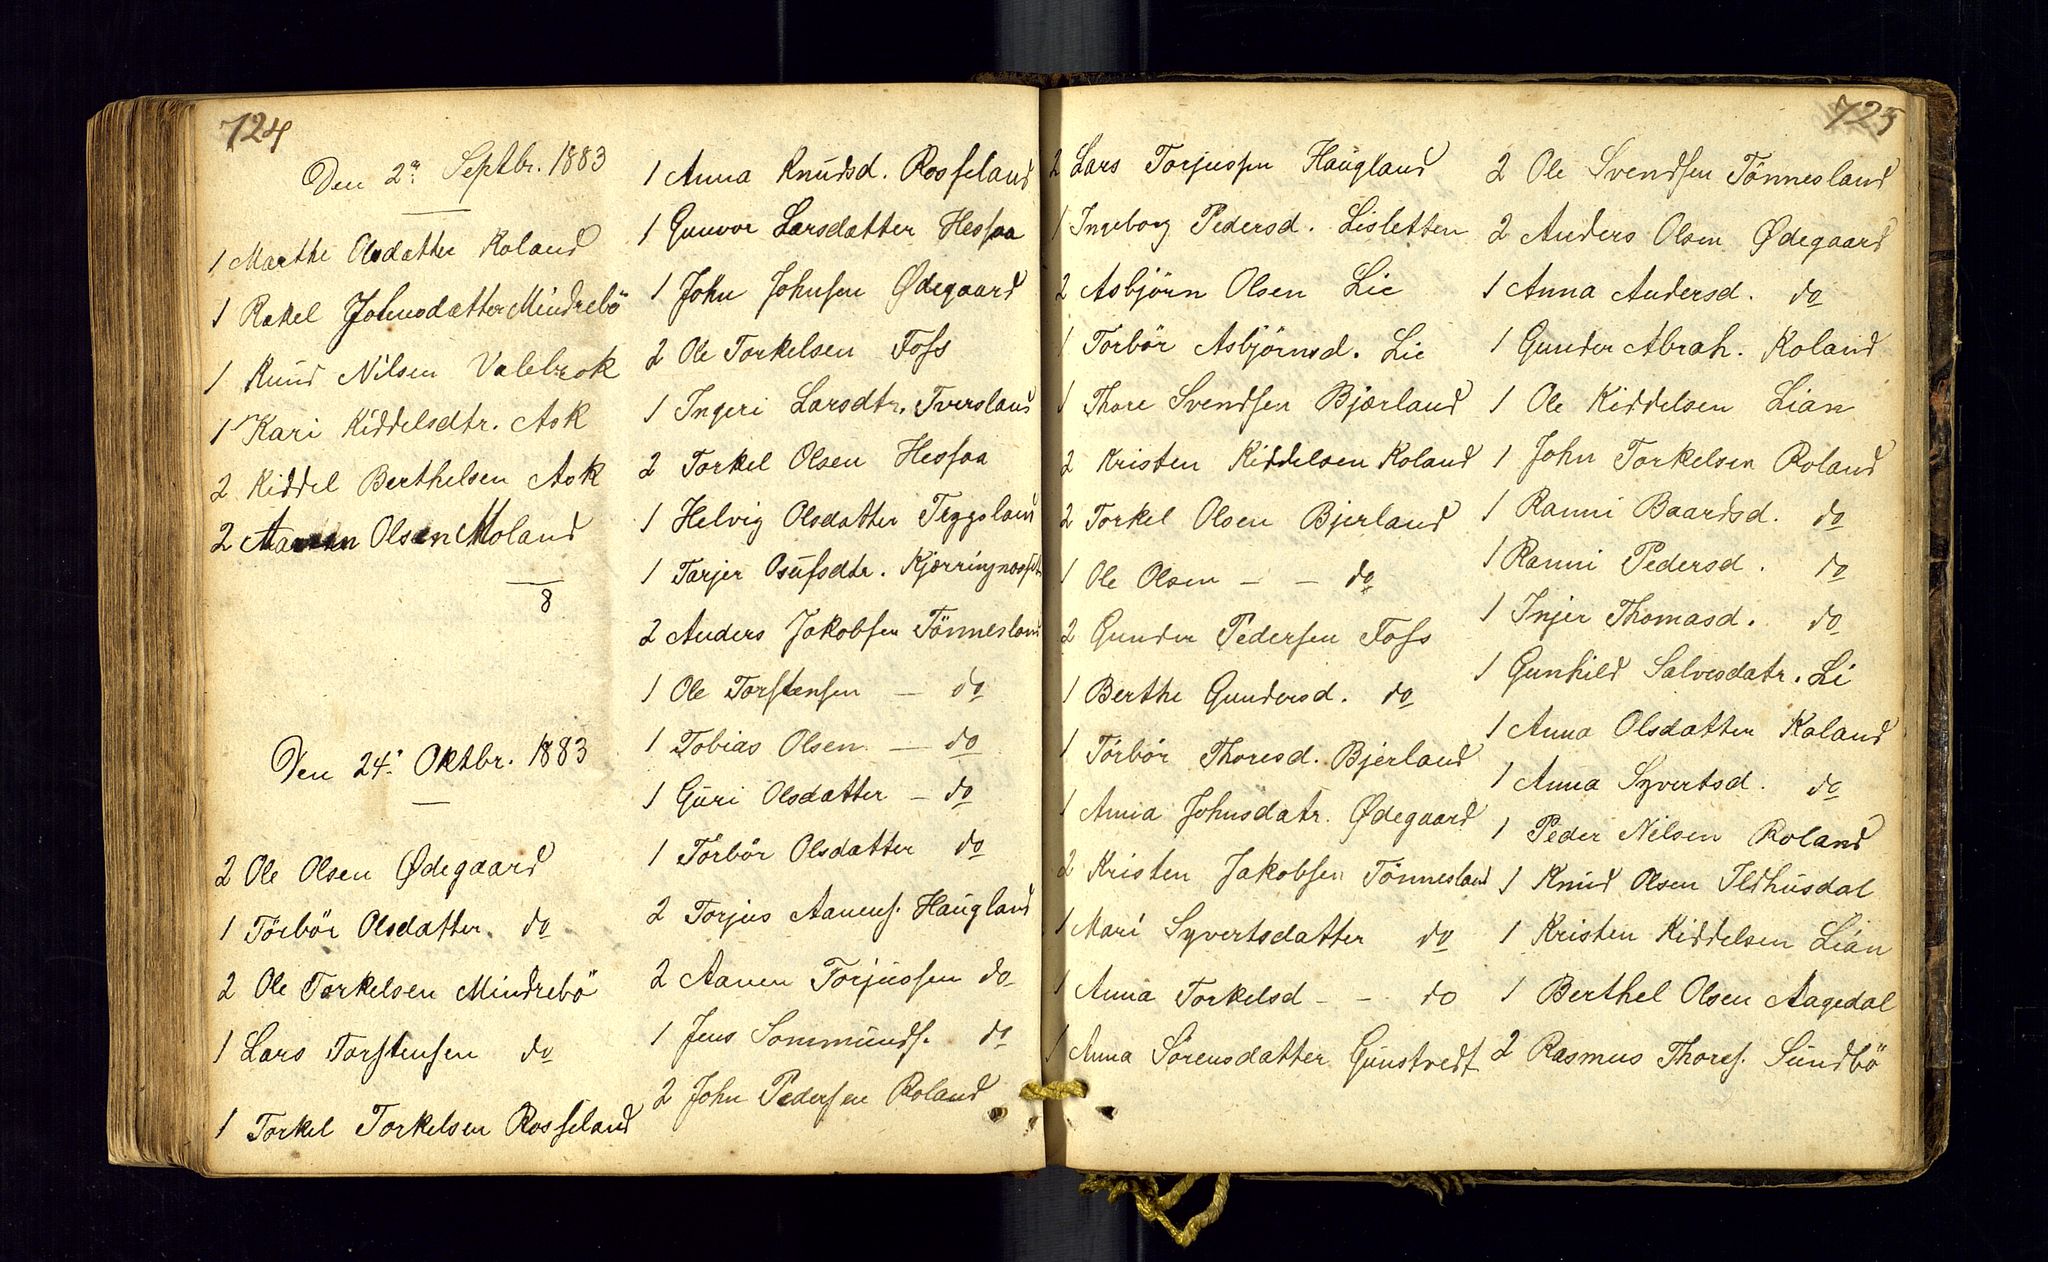 724
Den 2n Septbr. 1883
1 Marthe Olsdatter Roland
1 Rakel Johnsdatter Mindrebö
1 Knud Nilsen Valebrok
1 Kari Kiddelsdtr. Ask
2 Kiddel Berthelsen Ask
2 Olsen Moland
8
Den 24. Oktbr. 1883
2 Ole Olsen Ødegaard
1 Törbör Olsdatter do
2 Ole Torkelsen Mindrebö
1 Lars Torstensen do
1 Torkel Torkelsen Rosseland
1 Anna Knudsd. Rosseland
1 Gunvor Larsdatter Hessaa
1 John Johnsen Ødegaard
2 Ole Torkelsen Foss
1 Ingeri Larsdtr. Tversland
2 Torkel Olsen Hessaa
1 Helvig Olsdatter Tryggsland
1 Tarjer Osufsdtr. Kjærringnosset
2 Anders Jakobsen Tönnesland
1 Ole Torstensen — do
1 Tobias Olsen — do
1 Guri Olsdatter — do
1 Törbör Olsdatter do
2 Torjus Aanens. Haugland
2 Aanen Torjussen do
1 Jens Sommunds. do
2 John Pedersen Roland
725
2 Lars Torjussen Haugland
1 Ingeborg Pedersd. Lisletten
2 Asbjörn Olsen Lie
1 Torbör Asbjörnsd. Lie
1 Thore Svendsen Bjærland
2 Kristen Kiddelsen Roland
2 Torkel Olsen Bjerland
1 Ole Olsen — — do
2 Gunder Pedersen Foss
1 Berthe Gundersd. do
1 Törbör Thoresd. Bjerland
1 Anna Johnsdatr. Ødegaard
2 Kristen Jakobsen Tönnesland
1 Mari Syvertsdatter do
1 Anna Torkelsd — — do
1 Anna Sörensdatter Gunstvedt
2 Ole Svendsen Tönnesland
2 Anders Olsen Ødegaard
1 Anna Andersd. do
1 Gunder Abrah. Roland
1 Ole Kiddelsen Lian
1 John Torkelsen Roland
1 Ranni Baardsd. do
1 Ranni Pedersd. do
1 Injer Thomasd. do
1 Gunhild Salvesdatr. Li
1 Anna Olsdatter Roland
1 Anna Syvertsd. do
1 Peder Nilsen Roland
1 Knud Olsen Ildhusdal
1 Kristen Kiddelsen Lian
1 Berthel Olsen Aagedal
2 Rasmus Thores. Sundbö